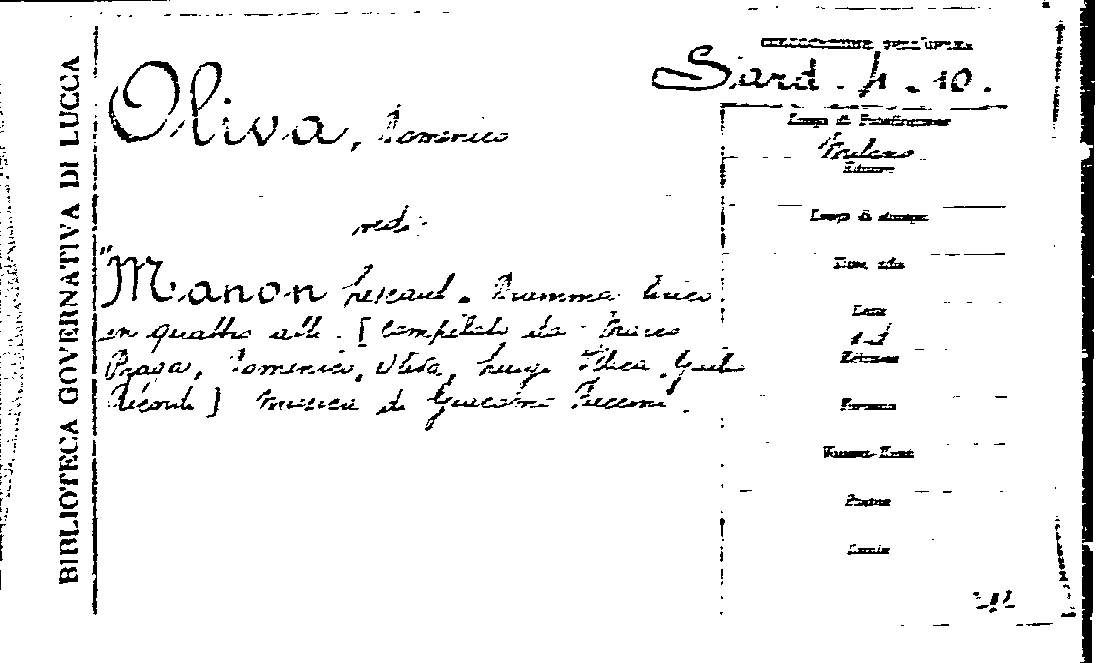 BIBLIOTECA GOVERNATIVA DI LUCCA
COLLOCAZIONE DELL'OPERA
Sard. 4. 10.
Oliva, Domenico
vedi:
"Manon Lescaut. Dramma lirico
in quattro atti. [Compilato da Marco
Praga, Domenico, Oliva, Luigi Illica, Giulio
Ricordi] Musica di Giacomo Puccini.
Luogo di Pubblicazione
Milano
Editore
Luogo di stampa
Data
s.d.
Edizione
Formato
Pagine